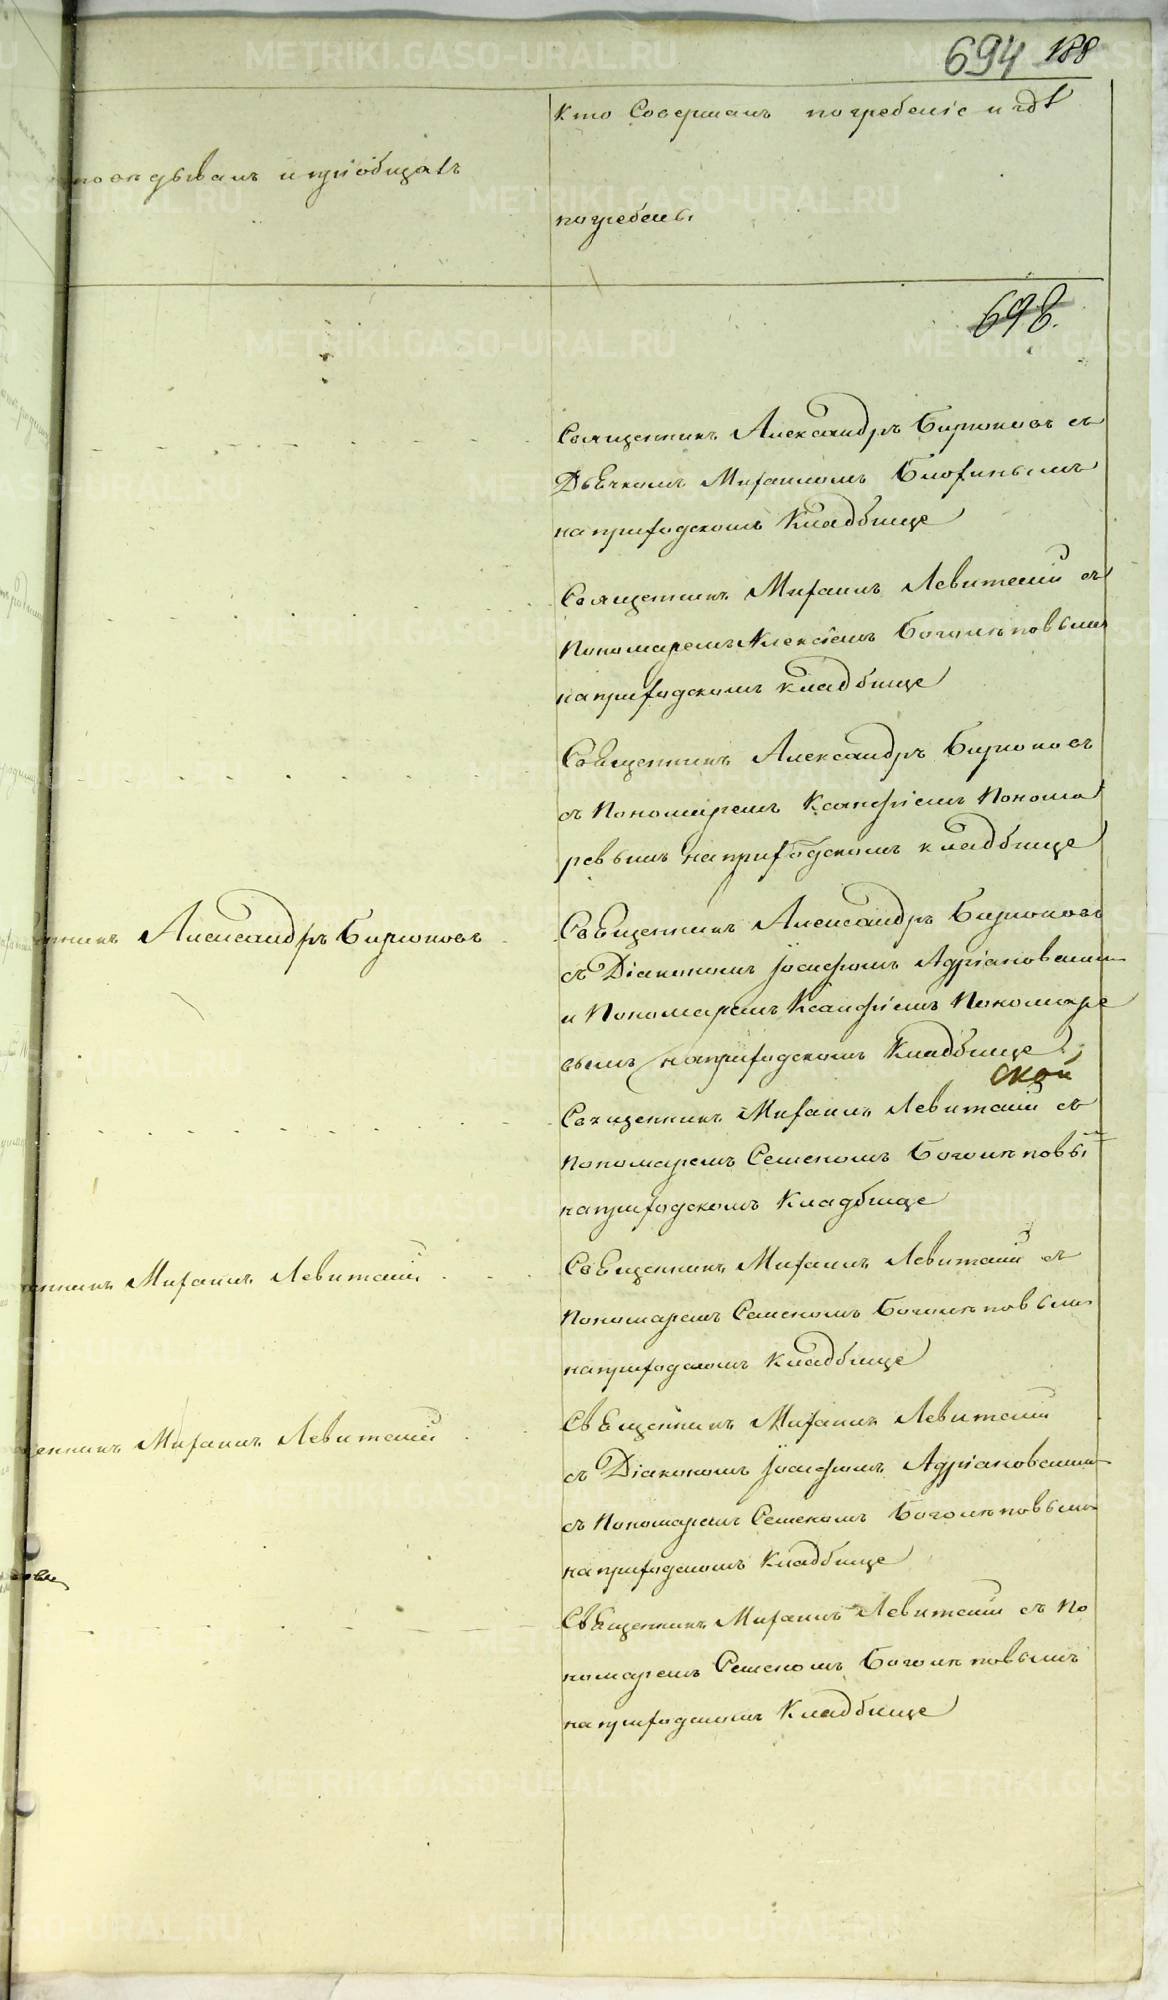 694 188
Кто Совершалъ погребенiе и гдѣ
исповѣдывалъ и прiобщалъ
погребены
698.
Священникъ Александръ Бирюковъ съ
Дьячкомъ Михаиломъ
на приходскомъ Кладбище
Священникъ Михаилъ Левитскiй съ
Пономаремъ Алексiемъ Боголѣповымъ
на приходскомъ кладбище
Свѣщенникъ Александръ Бирюковъ
съ Пономаремъ Ксанфiемъ Понома
ревымъ на приходскомъ кладбище
Александръ Бирюковъ
Свѣщенникъ Александръ Бирюковъ
съ Дiакономъ Iосифомъ Адрiановскимъ
и Пономаремъ Ксанфiемъ Пономаре
вымъ на приходскомъ Кладбище
ской
Священникъ Михаилъ Левитскiй съ
Пономаремъ Семеномъ Боголѣповы
на приходскомъ Кладбище
Михаилъ Левитскiй
Свѣщенникъ Михаилъ Левитскiй съ
Пономаремъ Семеномъ Боголѣповымъ
на приходскомъ Кладбище
Михаилъ Левитскiй
Свѣщенникъ Михаилъ Левитскiй
съ Дiакономъ Iосифомъ Адрiановскимъ
съ Пономаремъ Семеномъ Боголѣповымъ
на приходскомъ Кладбище
Свѣщенникъ Михаилъ Левитскiй съ По
номаремъ Семеномъ Боголѣповымъ
на приходскомъ Кладбище
METRIKI.GASO-URAL.RU